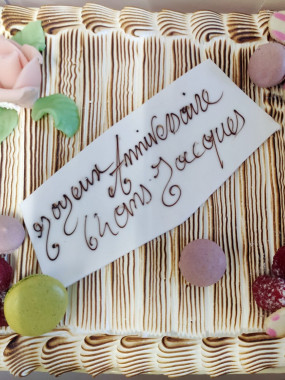 Joyeux Anniversaire
Hans Jacques